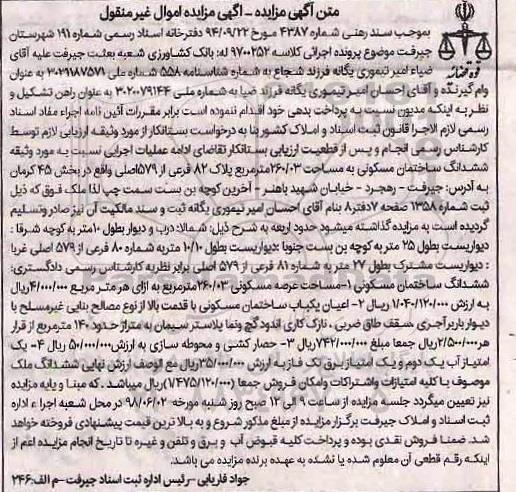 متن آگهی مزایده - آگهی مزایده اموال غیر منقول
قوه قضائیه
بموجب سند رهنی شماره ۴۳۸۷ مورخ ۹۴/۰۹/۲۲ دفترخانه اسناد رسمی شماره ۱۹۱ شهرستان
جیرفت موضوع پرونده اجرائی کلاسه ۹۷۰۰۲۵۲ له: بانک کشاورزی شعبه بعثت جیرفت علیه آقای
ضیاء امیر تیموری یگانه فرزند شجاع به شماره شناسنامه ۵۵۸ شماره ملی ۳۰۲۹۱۸۷۵۷۱ به عنوان
وام گیرنده و آقای إحسان امیر تیموری یگانه فرزند ضیا به شماره ملی ۳۰۲۰۰۷۹۱۴۴ به عنوان راهن تشکیل و
نظر به اینکه مدیون نسبت به پرداخت بدهی خود اقدام ننموده است برابر مقررات آئین نامه اجراء مفاد اسناد
رسمی لازم الاجرا قانون ثبت اسناد و املاک کشور بنا به درخواست بستانکار از مورد وثیقه ارزیابی لازم توسط
کارشناس رسمی انجام و پس از قطعیت ارزیابی بستانکار تقاضای ادامه عملیات اجرایی نسبت به مورد وثیقه
ششدانگ ساختمان مسکونی به مساحت ۲۶۰/۰۳مترمربع پلاک ۸۲ فرعی از ۵۷۹اصلی واقع در بخش ۴۵ کرمان
به آدرس: جیرفت - رهجرد - خیابان شهید باهنر - آخرین کوچه بن بست سمت چپ لذا ملک فوق که ذیل
ثبت شماره ۱۳۵۸ صفحه ۷دفتر۸ بنام آقای احسان امیر تیموری یگانه ثبت و سند مالکیت آن نیز صادر وتسلیم
گردیده است به مزایده گذاشته میشود حدود اربعه به شرح ذیل: شمالا: درب و دیوار بطول ۱۰متر به کوچه شرقا :
دیواریست بطول ۲۵ متر به کوچه بن بست جنوبا :دیواریست بطول ۱۰/۱۰ متر به شماره ۸۰ فرعی از ۵۷۹ اصلی غربا
: دیواریست مشترک بطول ۲۷ متر به شماره ۸۱ فرعی از ۵۷۹ اصلی برابر نظریه کارشناس رسمی دادگستری:
ششدانگ ساختمان مسکونی ۱-مساحت عرصه مسکونی ۲۶۰/۰۳مترمربع به ازای هر متر مربع ۴/۰۰۰/۰۰۰ریال
به ارزش ۱/۰۴۰/۱۲۰/۰۰۰ ریال ۲- اعیان یکباب ساختمان مسکونی با قدمت بالا از نوع مصالح بنایی غیرمسلح با
دیوار باربر آجری ،سقف طاق ضربی ، نازک کاری اندود گچ ونما پلاستر سیمان به متراژ حدود ۱۴۰ مترمربع از قرار
هر ۲/۵۰۰/۰۰۰ریال جمعا مبلغ ۷۴۲/۰۰۰/۰۰۰ریال ۳- حصار کشی و محوطه سازی به ارزش ۵۰/۰۰۰/۰۰۰ ریال ۴- یک
امتیاز آب یک دوم و یک امتیاز برق تک فاز به ارزش ۳۵/۰۰۰/۰۰۰ریال مع الوصف ارزش نهایی ششدانگ ملک
موصوف با کلیه امتیازات واشتراکات وامکان فروش جمعا (۷۴۷۵/۱۲۰/۰۰۰)ریال میباشد . که مبنا و پایه مزایده
نیز تعیین میگردد جلسه مزایده از ساعت ۹ الی ۱۲ صبح روز شنبه مورخه ۹۸/۰۶/۰۲ در محل شعبه اجراء اداره
ثبت اسناد و املاک جیرفت برگزار مزایده از مبلغ مذکور شروع و به بالا ترین قیمت پیشنهادی فروخته خواهد
شد. ضمنا فروش نقدی بوده و پرداخت کلیه قبوض آب و برق و تلفن و غیره تا تاریخ انجام مزایده اعم از
اینکه رقم قطعی آن معلوم شده یا نشده به عهده برنده مزایده می باشد.
جواد فاریابی -رئیس اداره ثبت اسناد جیرفت-م الف:۲۴۶